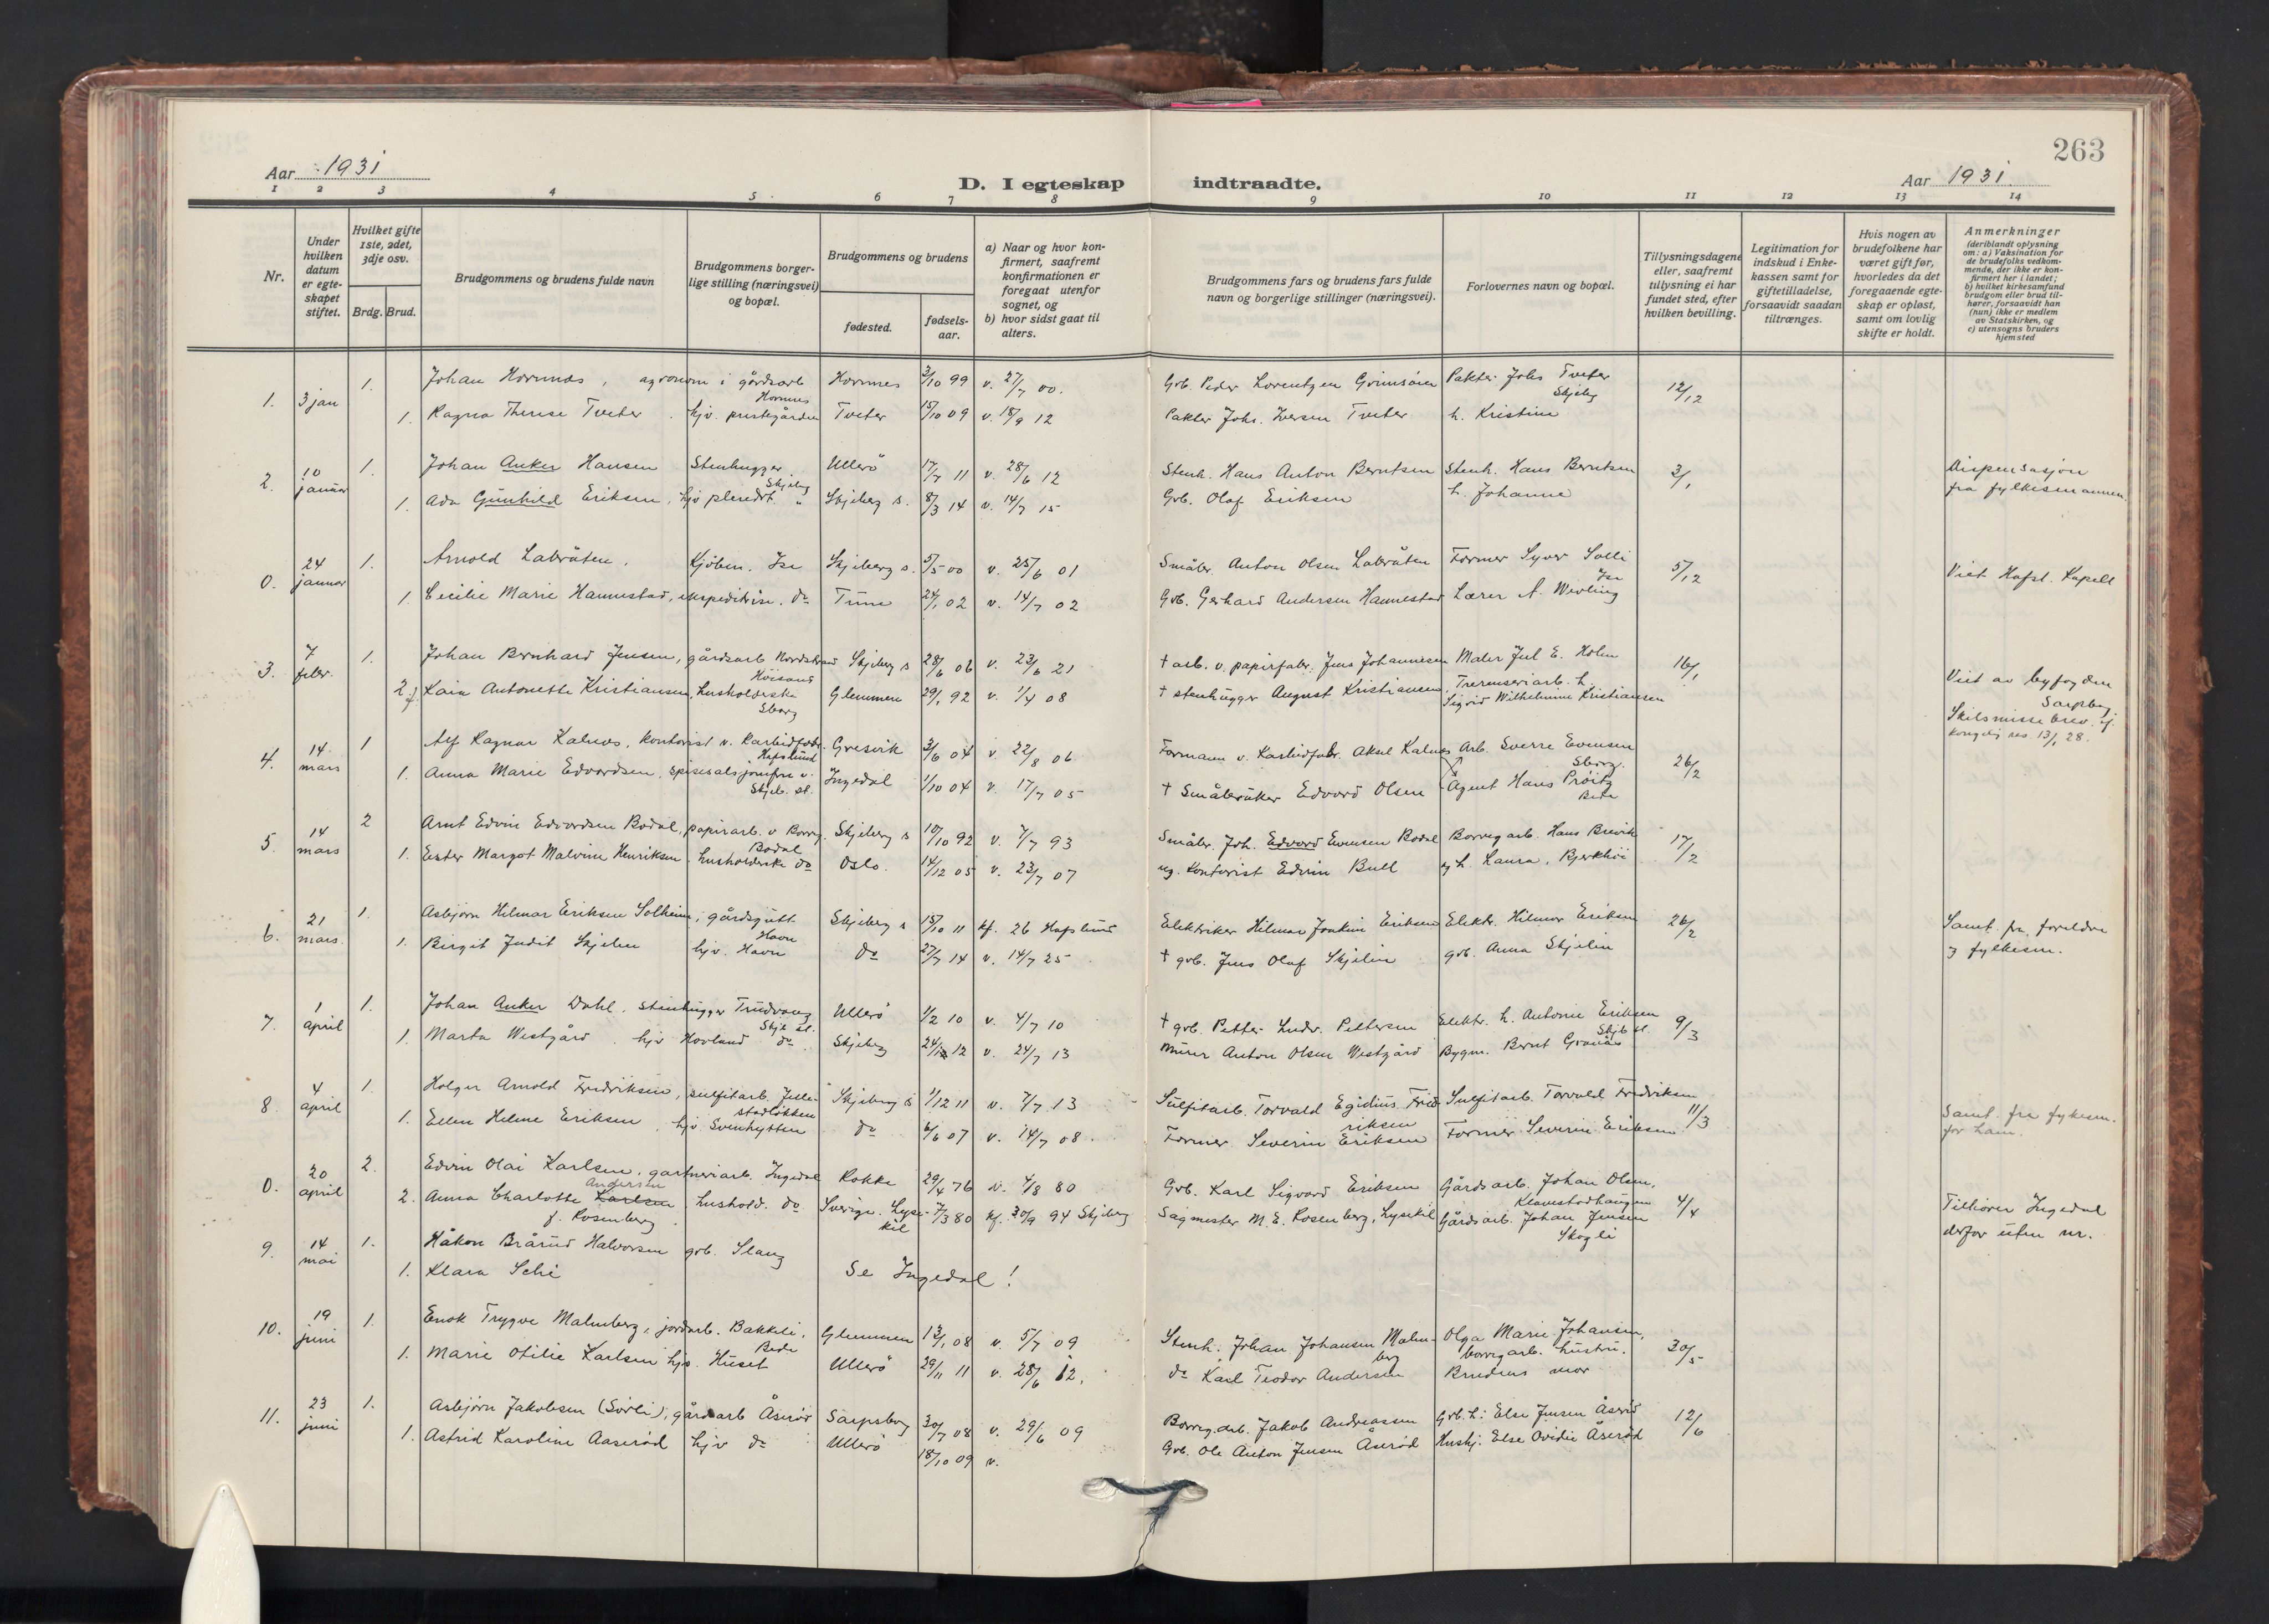 263
Aar 1931
D. I egteskap indtraadte.
Aar 1931.
1 2 3 4 5 6 7 8 9 10 11 12 13 14
Nr.
Under hvilken datum er egteskapet stiftet.
Hvilket gifte 1ste, 2det, 3dje osv.
Brdg. Brud.
Brudgommens og brudens fulde navn
Brudgommens borgerlige stilling (næringsvei) og bopæl.
Brudgommens og brudens
fødested.
fødselsaar.
a) Naar og hvor konfirmert, saafremt konfirmationen er foregaat utenfor sognet, og
b) hvor sidst gaat til alters.
Brudgommens fars og brudens fars fulde navn og borgerlige stillinger (næringsvei).
Forlovernes navn og bopæl.
Tillysningsdagene eller, saafremt tillysning ei har fundet sted, efter hvilken bevilling.
Legitimation for indskud i Enkekassen samt for giftetilladelse, forsaavidt saadan tiltrænges.
Hvis nogen av brudefolkene har været gift før, hvorledes da det foregaaende egteskap er opløst, samt om lovlig skifte er holdt.
Anmerkninger
(deriblandt oplysning om: a) Vaksination for de brudefolks vedkommende, der ikke er konfirmert her i landet; b) hvilket kirkesamfund brudgom eller brud tilhører, forsaavidt han (hun) ikke er medlem av Statskirken, og c) utensogns bruders hjemsted
1. 3 jan 1. Johan Hornnes, agronom i gårdsarb Hornnes Hornnes 3/10 99 v. 27/7 00. Grb. Peder Lorentzen Grimsøien Pakter Johs Tveter Skjeberg 12/12
1. Ragna Therese Tveter hjv. prestegården Tveter 15/10 09 v. 18/9 12 Pakter Johs. Iversen Tveter h. Kristine
2. 10 januar 1. Johan Anker Hansen Stenhugger Skjeberg Ullerö 17/7 11 v. 28/6 12 Stenh. Hans Anton Berntsen Stenh. Hans Berntsen 3/1 Dispensasjon
1. Ada Gunhild Eriksen, hjv pleredst. " Skjeberg s. 8/3 14 v. 14/7 15 Grb. Olaf Eriksen h. Johanne fra fylkesmannen.
0. 24 januar 1. Arnold Labråten, Kjöbm. Ise Skjeberg s. 5/5 00 v. 25/6 01 Småbr. Anton Olsen Labråten Former Syver Solli Ise 5/12 Viet Hafsl. Kapell
1. Cecilie Marie Hannestad, ekspeditrise. do Tune 24/1 02 v. 14/7 02 Grb. Gerhard Andersen Hannestad Lærer A. Wevling
3. 7 febr. 1. Johan Bernhard Jensen, gårdsarb Nordstrand Höisand Skjeberg s 28/6 06 v. 23/6 21 † arb. v. papirfabr. Jens Johannesen Maler Jul E. Holm 16/1
2 f. Kaia Antonette Kristiansen, husholderske Sborg Glemmen 29/1 92 v. 1/4 08 † stenhugger August Kristiansen Tremseriarb. h. Sigrid Wilhelmine Kristiansen Viet av byfogden Sarpsborg. Skilsmissebrev if. kongelig res. 13/1 28.
4. 14 mars 1 Alf Ragnar Kalnes, kontorist v. Karbidfabr. Hafslund Gresvik 3/6 04 v. 22/8 06 Formann v. Karbidfabr. Aksel Kalnes Arb. Sverre Evensen Sborg. 26/2
1. Anna Marie Edvardsen, spisesalsjomfru v. Skjeb. st. Ingedal 1/10 04 v. 17/7 05 † Småbruker Edvard Olsen Agent Hans Pröitz Bede
5. 14 mars 2 Arnt Edvin Edvardsen Bodal, papirarb. v Borreg. Bodal Skjeberg s 10/10 92 v. 7/7 93 Småbr. Joh. Edvard Evensen Bodal Borregarb. Hans Brevik 17/2
1. Ester Margot Malvine Henriksen, husholderske do Oslo. 14/12 05 v. 23/7 07 ug. Kontorist Edvin Bull og h. Laura, Bjerkhöi
6. 21 mars. 1. Asbjørn Hilmar Eriksen Solheim, gårdsgutt Havn Skjeberg s 15/10 11 kf. 26 Hafslund Elektriker Hilmar Joakim Eriksen Elektr. Hilmar Eriksen 26/2 Samt. fra foreldre
1. Birgit Judit Skjelin hjv. Havn do 27/7 14 v. 14/7 25 † grb. Jens Olaf Skjelin grb. Anna Skjelin og fylkesm.
7. 1 april 1. Johan Anker Dahl. stenhugger Trudvang Skjb st. Ullerö 1/2 10 v. 4/7 10 † grb. Petter Ludv. Pettersen Elektr. h. Antonie Eriksen Skjb st. 9/3
1. Marta Westgård. hjv Hovland do Skjeberg 24/12 12 v. 24/7 13 Murer Anton Olsen Westgård Bygm. Bernt Granås
8. 4 april 1. Holger Arnold Fredriksen, sulfitarb. Jellestadløkken Skjeberg s 1/12 11 v. 7/7 13 Sulfitarb. Torvald Egidius Fredriksen Sulfitarb. Torvald Fredriksen 11/3 Samt. fra fylkesm. for ham.
1. Ellen Helene Eriksen, hjv. Svenhytten do 6/6 07 v. 14/7 08. Former Severin Eriksen Former Severin Eriksen
0. 20 april 2. Edvin Olai Karlsen, gartneriarb. Ingedal Rokke 29/4 76 v. 4/8 80 Grb. Karl Sigvard Eriksen Gårdsarb. Johan Olsen, Klavestadhaugen 4/4 Tilhører Ingedal
2. Anna Charlotte Karlsen Andersen f. Rosenberg hushold. do Sverige. Lysekil 7/3 80 kf. 30/9 94 Skjeberg Sagmester M. E. Rosenberg, Lysekil Gårdsarb. Johan Jensen Skogli derfor uten nr.
9. 14 mai 1. Håkon Brårud Halvorsen grb. Stang
1. Klara Schi Se Ingedal!
10. 19 juni 1. Enok Trygve Malmberg, jordarb. Bakkeli, Bede Glemmen 13/1 08 v. 5/7 09 Stenh. Johan Johansen Malmberg Olga Marie Johansen, borregarb. hustru. 30/5
1. Marie Otilie Karlsen hjv. Huset Ullerö 29/11 11 v. 28/6 12. do Karl Teodor Andersen Brudens mor
11. 23 juni 1. Asbjørn Jakobsen (Sørli), gårdsarb Åserör Sarpsborg 30/7 08 v. 29/6 09 Borreg.arb. Jakob Andreassen Grb. h: Else Jensen Åserød 12/6
1. Astrid Karoline Aaserød hjv do Ullerö 18/10 09 v. Grb. Ole Anton Jensen Åserød Hushj. Else Ovidie Åserød